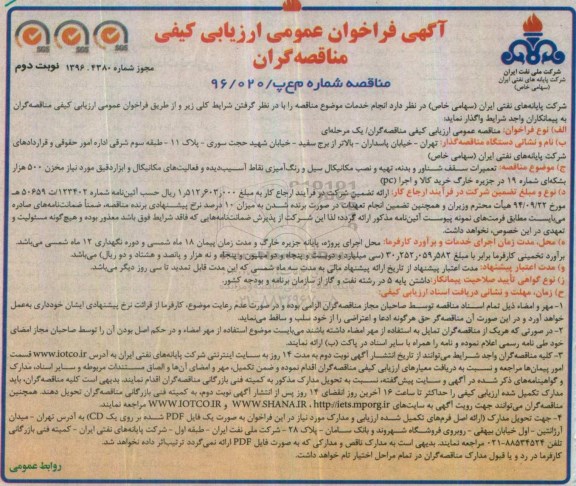 آگهی فراخوان عمومی ارزیابی کیفی
مناقصه‌گران
مناقصه شماره م‌ع‌پ/۹۶/۰۲۰
مجوز شماره ۴۳۸۰. ۱۳۹۶ نوبت دوم
شرکت ملی نفت ایران
شرکت پایانه های نفتی ایران
(سهامی خاص)
شرکت پایانه‌های نفتی ایران (سهامی خاص) در نظر دارد انجام خدمات موضوع مناقصه را با در نظر گرفتن شرایط کلی زیر و از طریق فراخوان عمومی ارزیابی کیفی مناقصه‌گران
به پیمانکاران واجد شرایط واگذار نماید:
الف) نوع فراخوان: مناقصه عمومی ارزیابی کیفی مناقصه‌گران/ یک مرحله‌ای
ب) نام و نشانی دستگاه مناقصه‌گذار: تهران - خیابان پاسداران - بالاتر از برج سفید - خیابان شهید حجت سوری - پلاک ۱۱ - طبقه سوم شرقی اداره امور حقوقی و قراردادهای
شرکت پایانه‌های نفتی ایران (سهامی خاص)
ج) موضوع مناقصه: تعمیرات سقف شناور و بدنه، تهیه و نصب مکانیکال سیل و رنگ‌آمیزی نقاط آسیب‌دیده و فعالیت‌های مکانیکال و ابزاردقیق مورد نیاز مخزن ۵۰۰ هزار
بشکه‌ای شماره ۱۹ در جزیره خارگ خرید کالا و اجرا (pc)
د) نوع و مبلغ تضمین شرکت در فرآیند ارجاع کار: ارائه تضمین شرکت در فرآیند ارجاع کار به مبلغ ۱,۵۱۲,۶۰۳,۰۰۰ ریال حسب آئین‌نامه شماره ۱۲۳۴۰۲/ت ۵۰۶۵۹ هـ
مورخ ۹۴/۰۹/۲۲ هیأت محترم وزیران و همچنین تضمین انجام تعهدات در صورت برنده شدن به میزان ۱۰ درصد نرخ پیشنهادی برنده مناقصه، ضمناً ضمانت‌نامه‌های صادره
می‌بایست مطابق فرمت‌های نمونه پیوست آئین‌نامه مذکور ارائه گردد؛ لذا این شرکت از پذیرش ضمانت‌نامه‌هایی که فاقد شرایط فوق باشد معذور بوده و هیچ‌گونه مسئولیت و
تعهدی در این خصوص، نخواهد داشت.
ه) محل، مدت زمان اجرای خدمات و برآورد کارفرما: محل اجرای پروژه، پایانه جزیره خارگ و مدت زمان پیمان ۱۸ ماه شمسی و دوره نگهداری ۱۲ ماه شمسی می‌باشد.
برآورد تخمینی کارفرما برابر با مبلغ ۳۰,۲۵۲,۰۵۹,۵۸۲ (سی میلیارد و دویست و پنجاه و دو میلیون و پنجاه و نه هزار و پانصد و هشتاد و دو ریال) می‌باشد.
و) مدت اعتبار پیشنهاد: مدت اعتبار پیشنهاد از تاریخ ارائه پیشنهاد مالی به مدت سه ماه شمسی که این مدت قابل تمدید تا سی روز دیگر می‌باشد.
ز) نوع گواهی تأیید صلاحیت پیمانکار: داشتن پایه ۵ در رشته نفت و گاز از سازمان برنامه و بودجه کشور.
ح) زمان، مهلت و نشانی دریافت اسناد ارزیابی کیفی:
۱- مهر و امضاء ذیل تمام اسناد مناقصه توسط صاحبان مجاز مناقصه‌گران الزامی بوده و در صورت عدم رعایت موضوع، کارفرما از قرائت نرخ پیشنهادی ایشان خودداری به‌عمل
خواهد آورد و در این صورت آن مناقصه‌گر حق هرگونه ادعا و اعتراضی را از خود سلب و ساقط می‌نماید.
۲- در صورتی که هریک از مناقصه‌گران تمایل به استفاده از مهر امضاء داشته باشند، می‌بایست موضوع استفاده از مهر امضاء و در حکم اصل بودن آن را توسط صاحبان مجاز امضای
خود طی نامه رسمی اعلام نموده و نامه را همراه با سایر اسناد در پاکت (ب) ارائه نمایند.
۳- کلیه مناقصه‌گران واجد شرایط می‌توانند از تاریخ انتشار آگهی نوبت دوم به مدت ۱۴ روز به سایت اینترنتی شرکت پایانه‌های نفتی ایران به آدرس www.iotco.ir قسمت
امور پیمان‌ها مراجعه و نسبت به دریافت معیارهای ارزیابی کیفی مناقصه‌گران اقدام نموده و ضمن تکمیل، مهر و امضای آن‌ها و الصاق مستندات مربوطه و سایر اسناد، مدارک
و گواهینامه‌های ذکر شده در آگهی و سایت پیش‌گفته، نسبت به تحویل مدارک مذکور به کمیته فنی بازرگانی مناقصه‌گران اقدام نمایند. بدیهی است کلیه مناقصه‌گران، باید
مدارک تکمیل شده ارزیابی کیفی را حداکثر تا ساعت ۱۶ آخرین روز انقضای ۱۴ روز پس از انتشار آگهی نوبت دوم، به کمیته فنی بازرگانی مناقصه‌گران تحویل دهند. همچنین
مناقصه‌گران می‌توانند جهت رویت آگهی به سایت‌های WWW.IOTCO.IR , WWW.SHANA.IR , http://iets.mporg.ir مراجعه نمایند.
۴- جهت تحویل مدارک (ارائه اصل فرم‌های تکمیل شده ارزیابی و مدارک مورد نیاز در این فراخوان به صورت یک فایل PDF شده بر روی یک CD) به آدرس تهران - میدان
آرژانتین - اول خیابان بیهقی - روبروی فروشگاه شهروند و بانک سامان - پلاک ۲۸ - شرکت ملی نفت ایران - طبقه اول - شرکت پایانه‌های نفتی ایران - کمیته فنی بازرگانی
تلفن ۸۸۵۳۴۵۲۴-۰۲۱ - مراجعه نمایند. بدیهی است به مدارک ناقص و مدارکی که به صورت فایل PDF ارائه نمی‌گردد ترتیب‌اثر داده نخواهد شد.
کارفرما در رد و یا قبول مدارک مناقصه‌گران در تمام مراحل اختیار تام خواهد داشت.
روابط عمومی